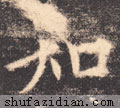 知
shufazidian.com